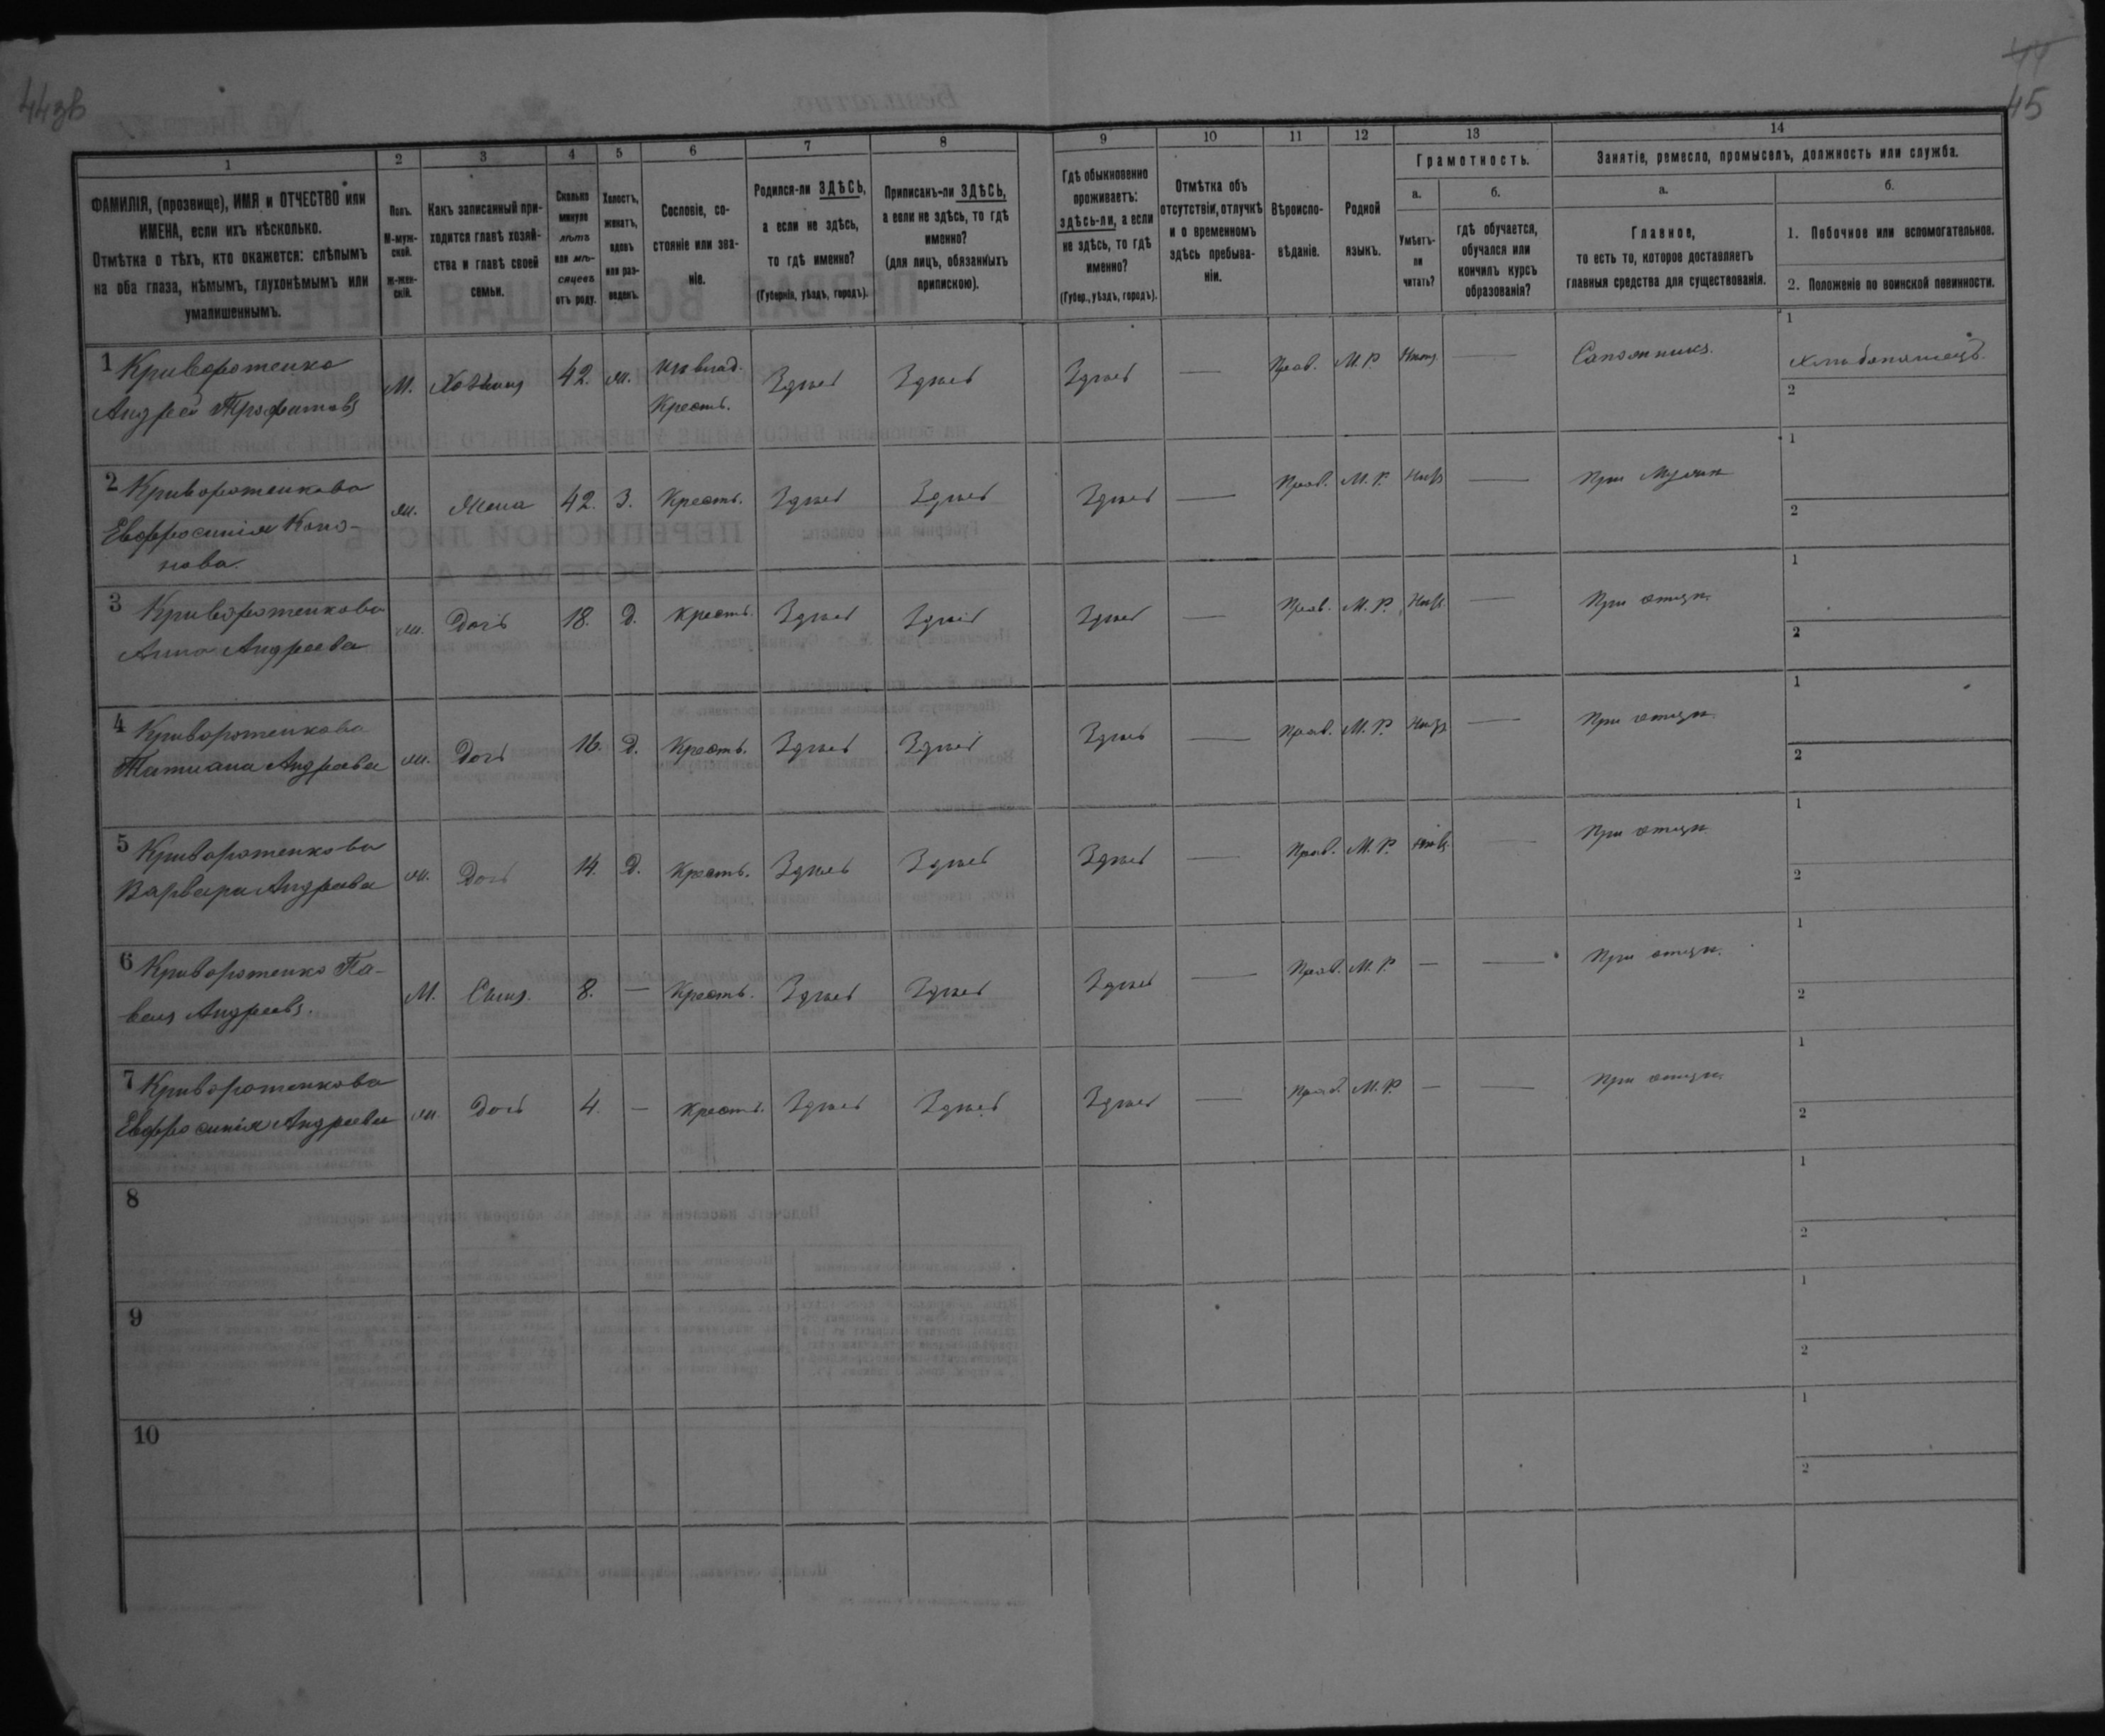 44зв
44
45
1 2 3 4 5 6 7 8 9 10 11 12 13 14
ФАМИЛІЯ, (прозвище), ИМЯ и ОТЧЕСТВО или ИМЕНА, если ихъ нѣсколько.
Отмѣтка о тѣхъ, кто окажется: слѣпымъ на оба глаза, нѣмымъ, глухонѣмымъ или умалишеннымъ.
Полъ. М-мужской. Ж-женскій.
Какъ записанный приходится главѣ хозяйства и главѣ своей семьи.
Сколько минуло лѣтъ или мѣсяцевъ отъ роду.
Холостъ, женатъ, вдовъ или разведенъ.
Сословіе, состояніе или званіе.
Родился-ли ЗДѢСЬ, а если не здѣсь, то гдѣ именно? (Губернія, уѣздъ, городъ).
Приписанъ-ли ЗДѢСЬ, а если не здѣсь, то гдѣ именно? (для лицъ, обязанныхъ припискою).
Гдѣ обыкновенно проживаетъ: здѣсь-ли, а если не здѣсь, то гдѣ именно? (Губер., уѣздъ, городъ).
Отмѣтка объ отсутствіи, отлучкѣ и о временномъ здѣсь пребываніи.
Вѣроисповѣданіе.
Родной языкъ.
Грамотность.
а. Умѣетъ-ли читать?
б. гдѣ обучается, обучался или кончилъ курсъ образованія?
Занятіе, ремесло, промыселъ, должность или служба.
а. Главное, то есть то, которое доставляетъ главныя средства для существованія.
б. 1. Побочное или вспомогательное.
2. Положеніе по воинской повинности.
1 Криворотенко М. Хозяинъ 42. ж. Кресть. Здѣсь Здѣсь Здѣсь — Прав. М. Р. — Сапожникъ. 1 Хлѣбопашецъ
Андрей Трофимовъ 2
2 Криворотенкова ж. Жена 42. З. Кресть. Здѣсь Здѣсь Здѣсь — Прав. М. Р. — При Мужѣ 1
Евфросинія Коно- 2
нова.
3 Криворотенкова ж. Дочь 18. Д. Кресть. Здѣсь Здѣсь Здѣсь — Прав. М. Р. — При отцѣ. 1
Анна Андреева 2
4 Криворотенкова ж. Дочь 16. Д. Кресть. Здѣсь Здѣсь Здѣсь — Прав. М. Р. — При отцѣ. 1
Татиана Андреева 2
5 Криворотенкова ж. Дочь 14. Д. Кресть. Здѣсь Здѣсь Здѣсь — Прав. М. Р. — При отцѣ 1
Варвара Андреева 2
6 Криворотенко Па- М. Сынъ. 8. — Кресть. Здѣсь Здѣсь Здѣсь — Прав. М. Р. — — При отцѣ. 1
велъ Андреевъ. 2
7 Криворотенкова ж. Дочь 4. — Кресть. Здѣсь Здѣсь Здѣсь — Прав. М. Р. — — При отцѣ. 1
Евфросинія Андреева 2
8 1
2
9 1
2
10 1
2